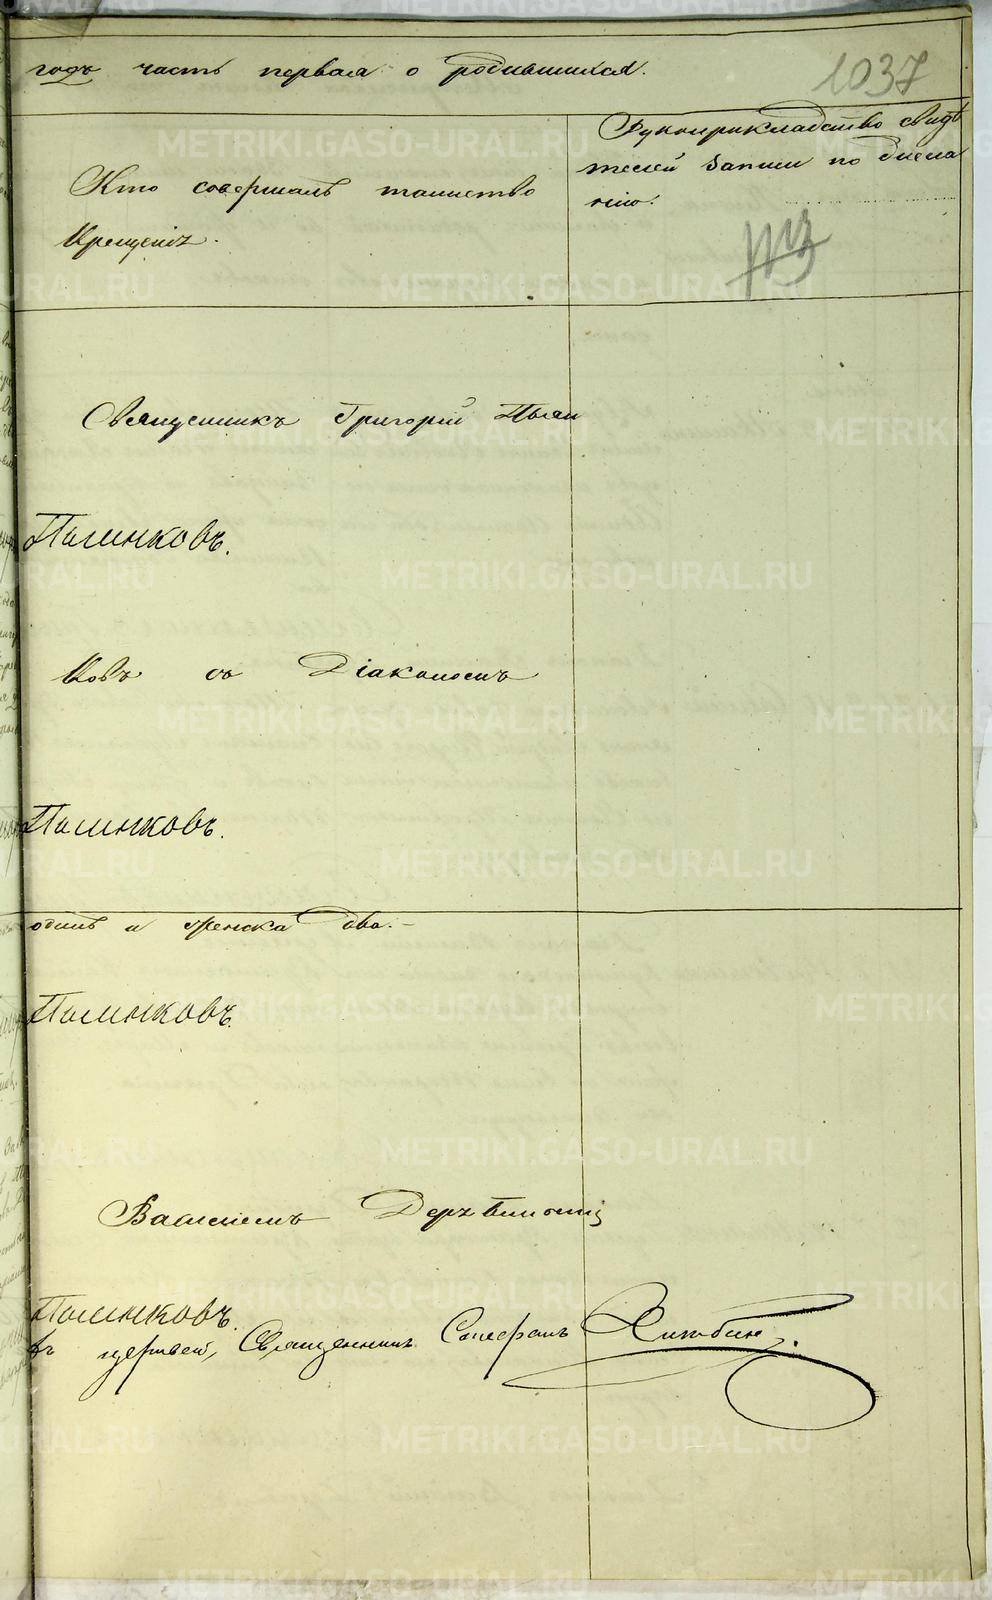 годъ часть первая о родившихся.
1037
Кто совершалъ таинство
Крещенія.
Рукоприкладство свидѣ
телей записи по жела
нію.
Священникъ Григорій Пьян
Пашнковъ.
ковъ съ Діакономъ
Пашнковъ.
одинъ а женска два.
Пашнковъ.
Василіемъ
Пашнковъ.
церквей, Священникъ
METRIKI.GASO-URAL.RU